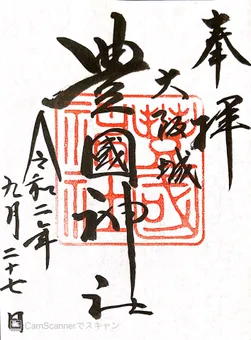 奉拝
大阪城
豊國神社
令和二年
九月二十七日
CamScannerでスキャン